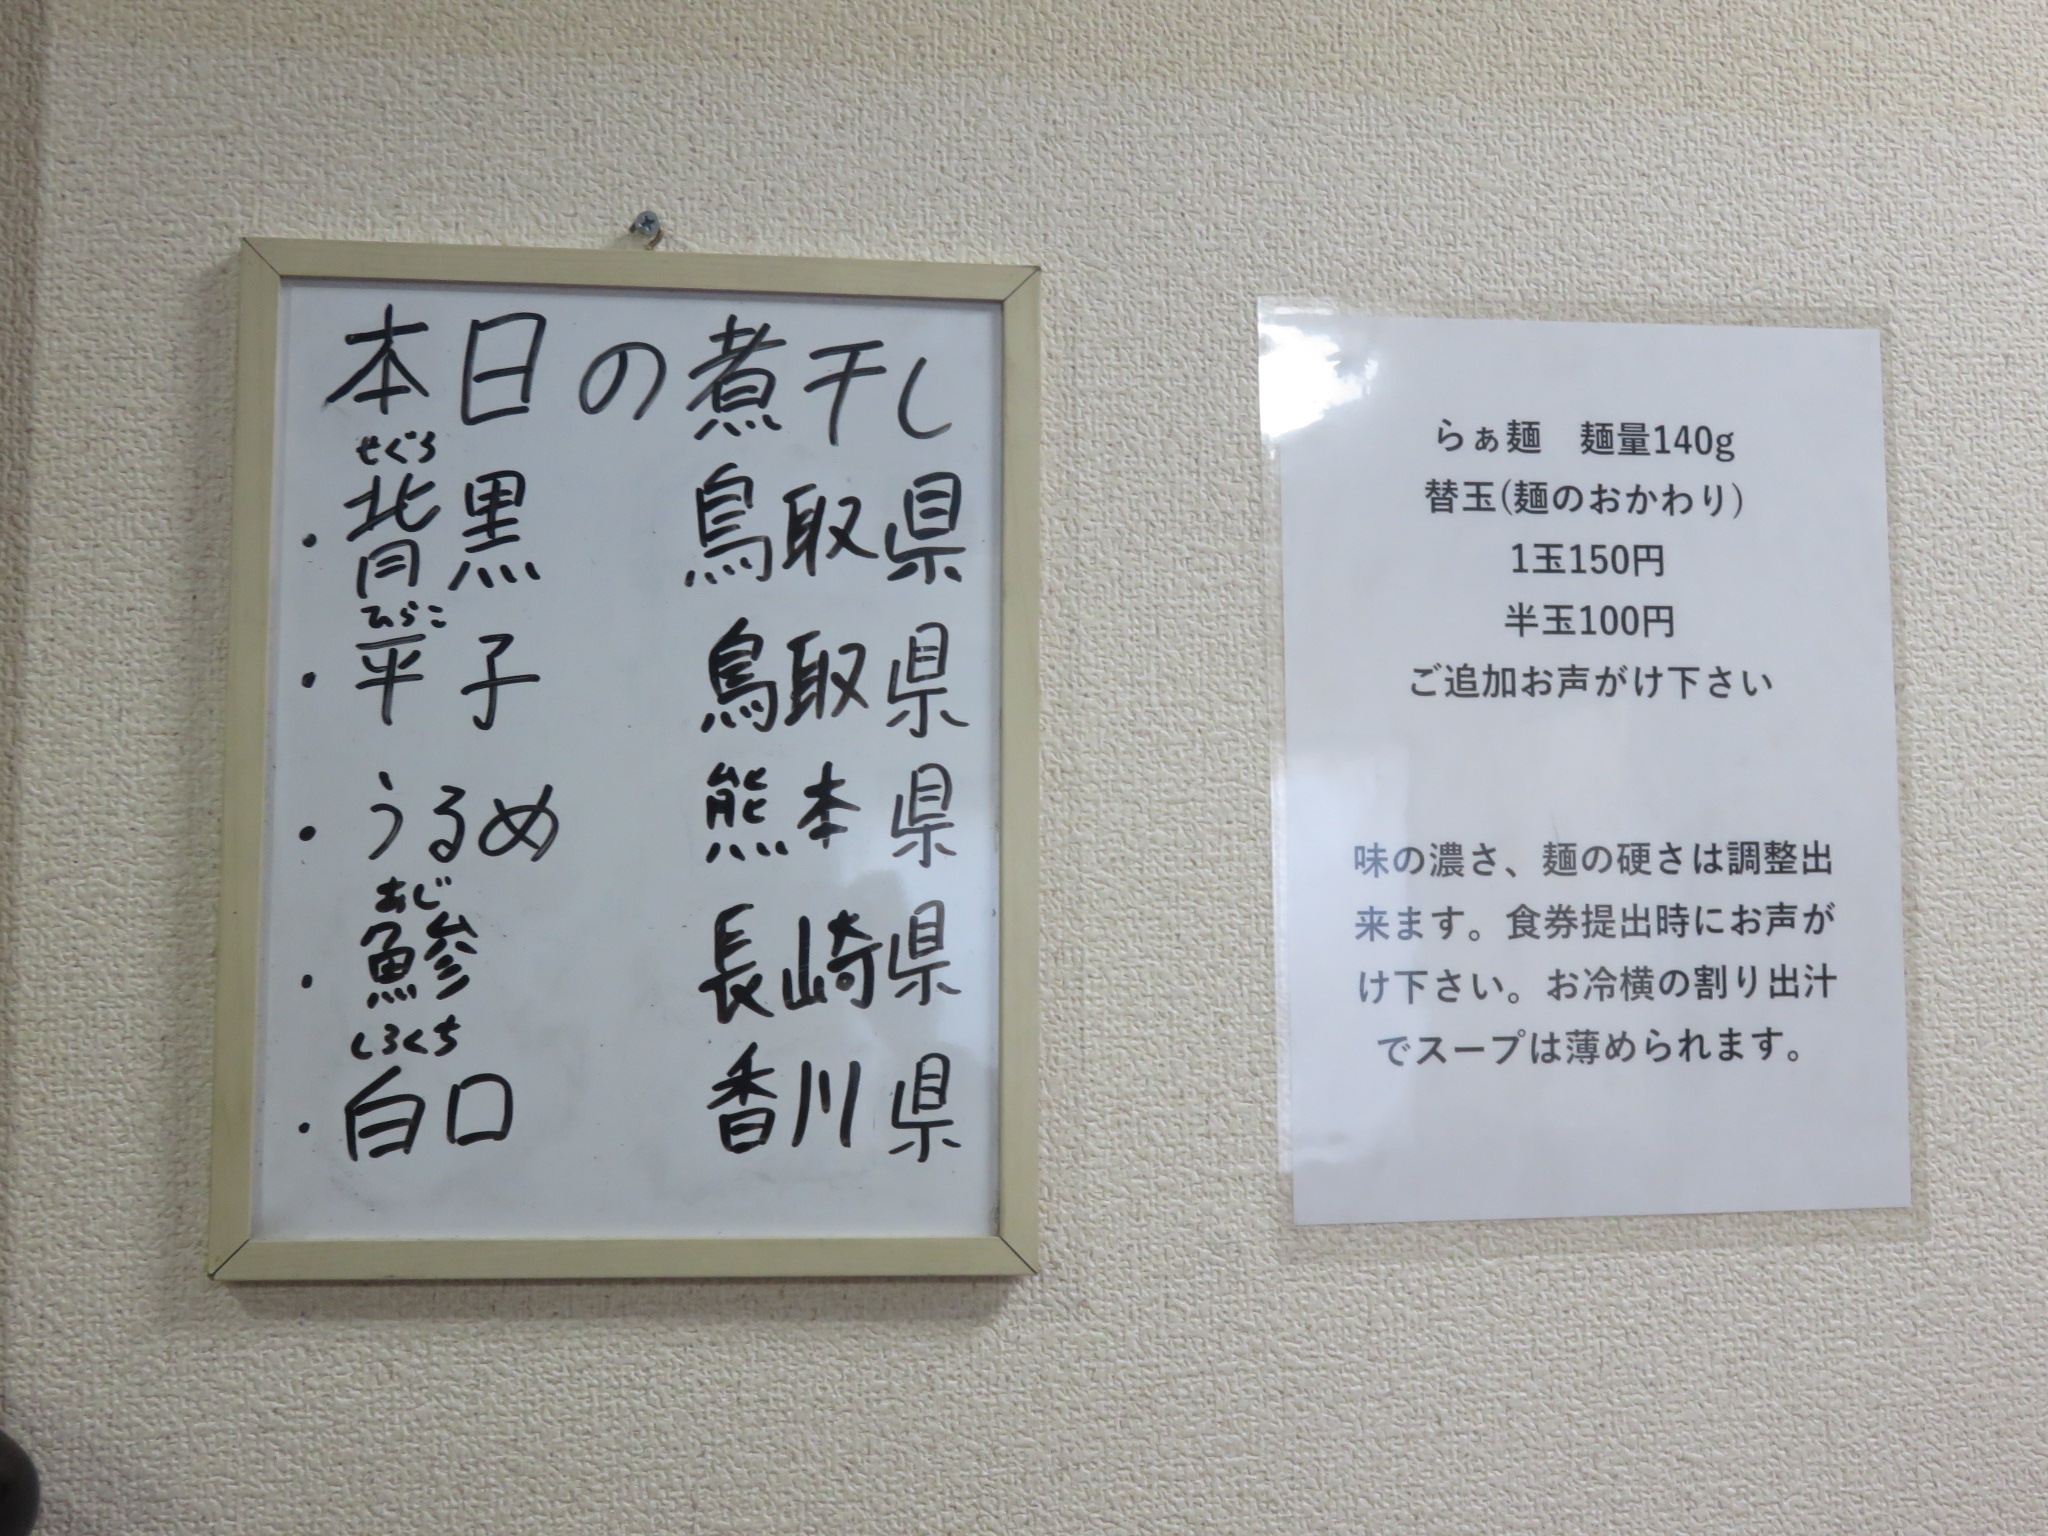 本日の煮干し
せぐろ
・背黒 鳥取県
ひらこ
・平子 鳥取県
・うるめ 熊本県
あじ
・鯵 長崎県
しろくち
・白口 香川県
らぁ麺 麺量140g
替玉(麺のおかわり)
1玉150円
半玉100円
ご追加お声がけ下さい
味の濃さ、麺の硬さは調整出
来ます。食券提出時にお声が
け下さい。お冷横の割り出汁
でスープは薄められます。